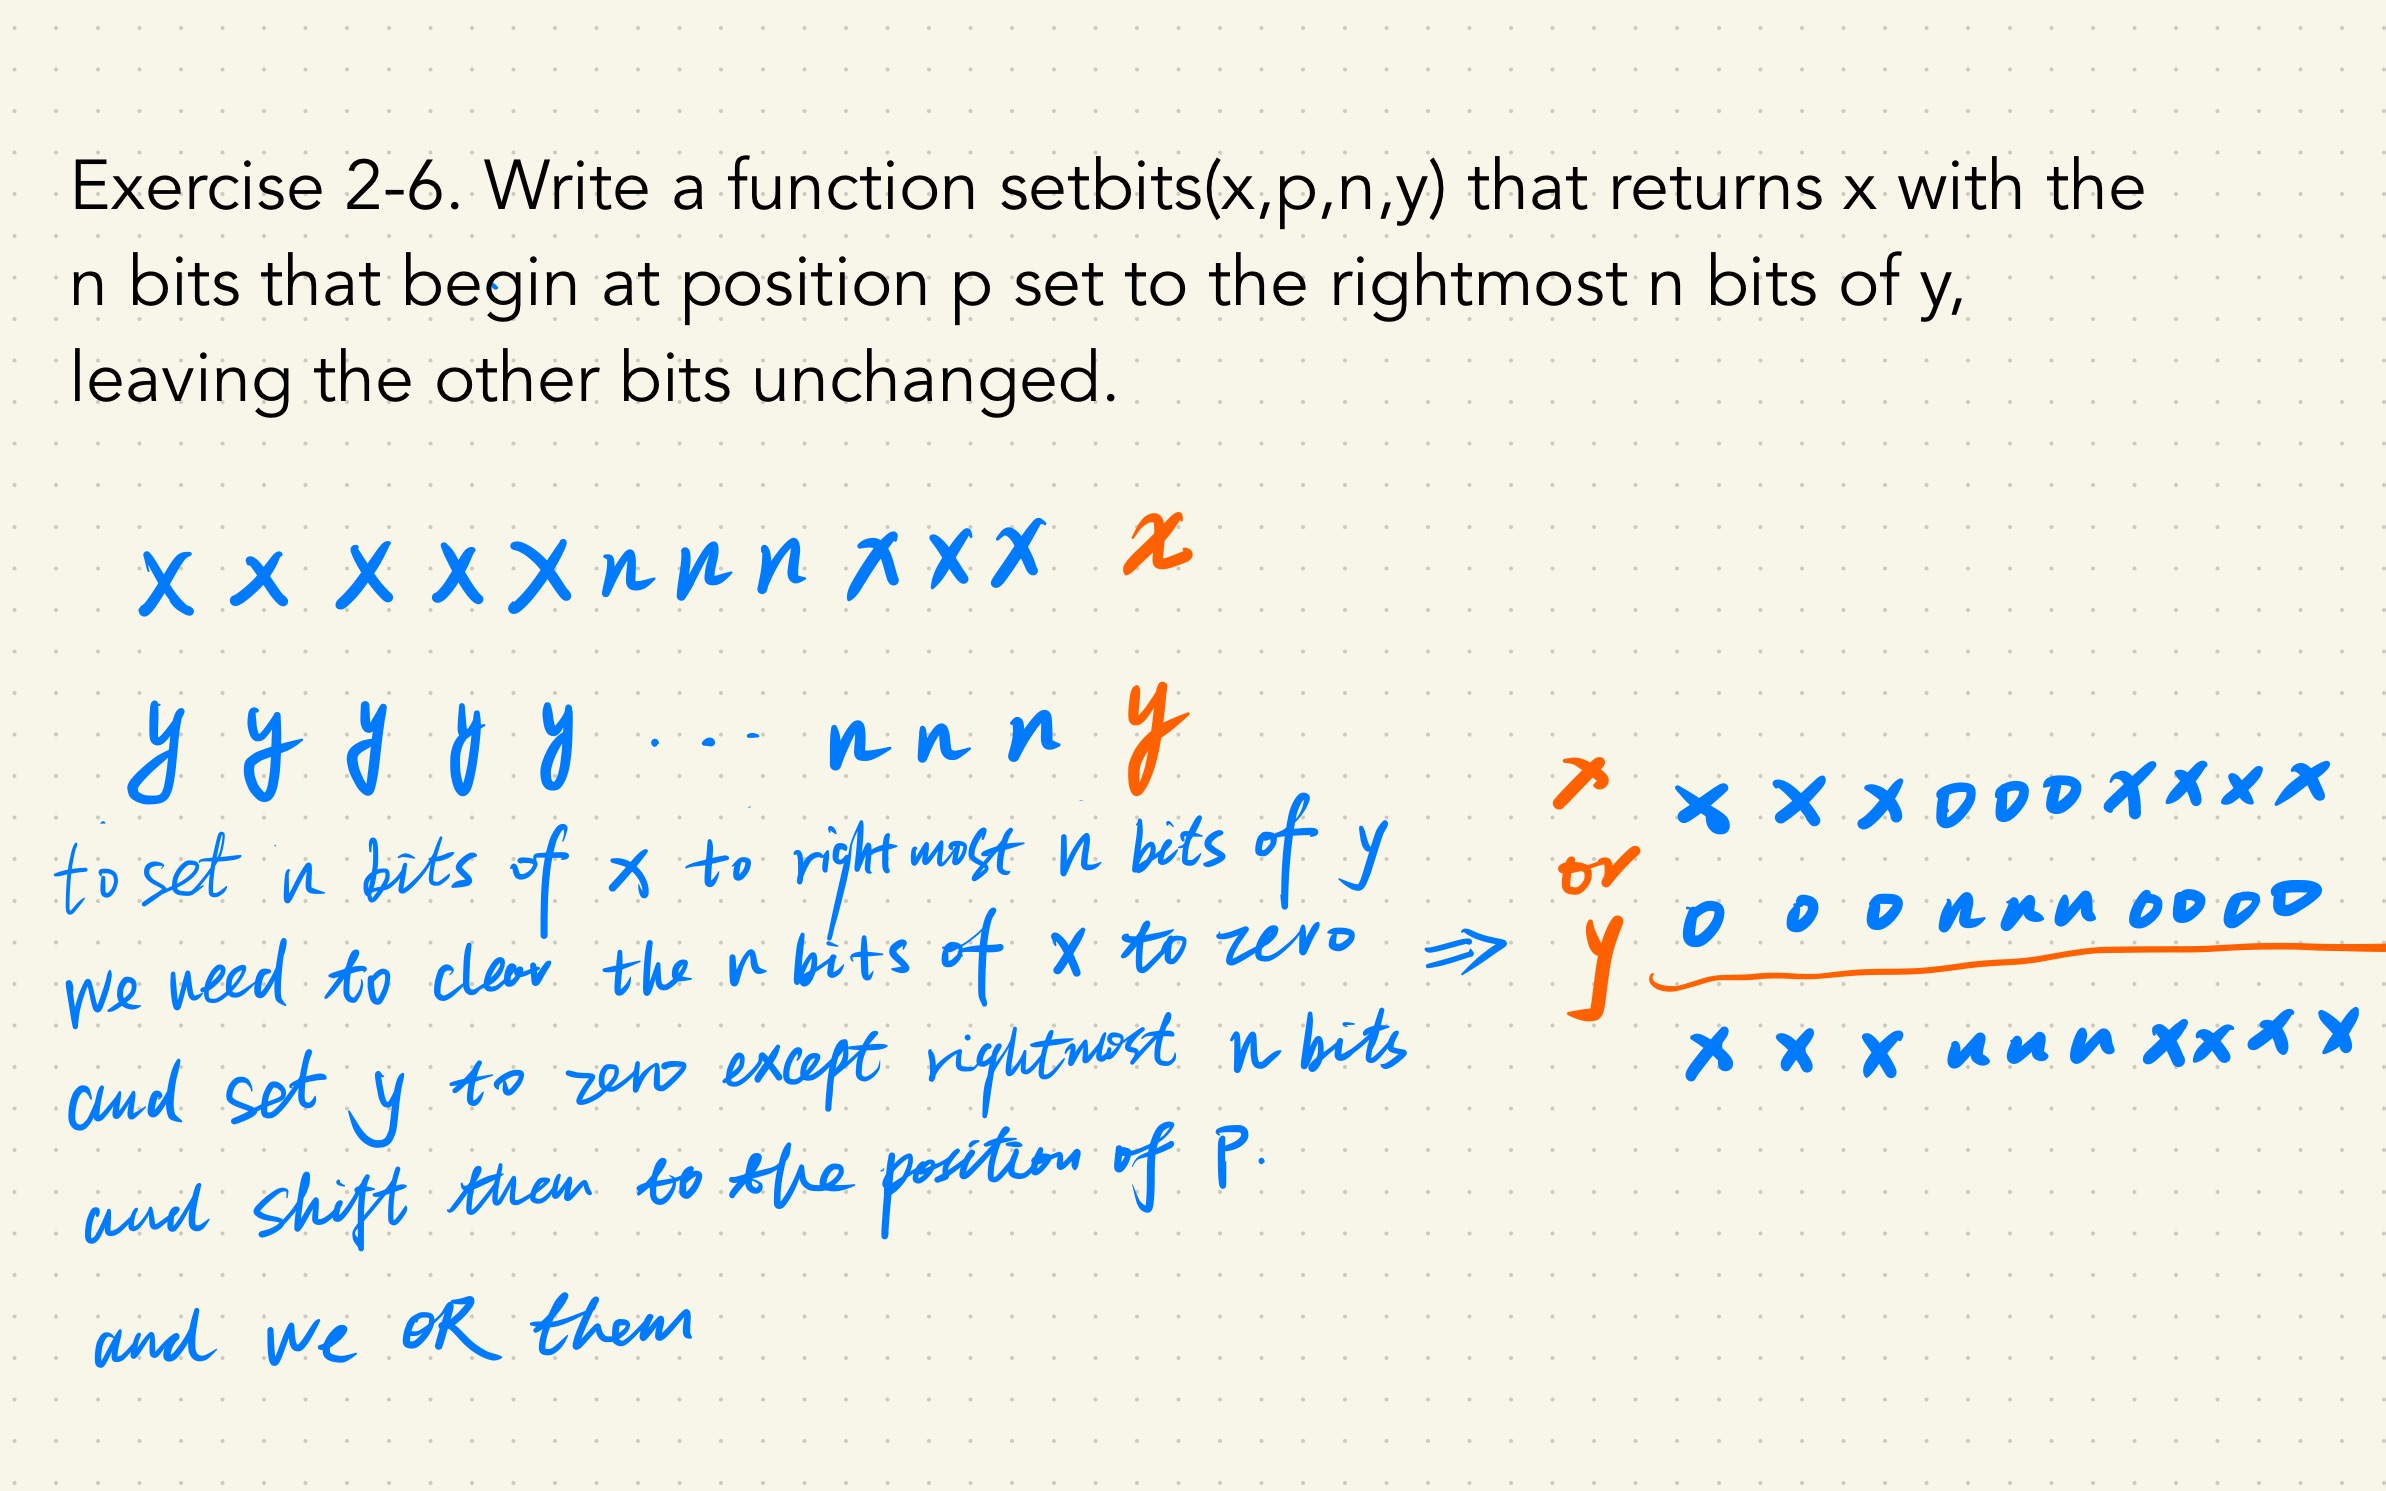 Exercise 2-6. Write a function setbits(x,p,n,y) that returns x with the
n bits that begin at position p set to the rightmost n bits of y,
leaving the other bits unchanged.
x x x x x n n n x x x x
y y y y y ... n n n y
to set n bits of x to rightmost n bits of y
we need to clear the n bits of x to zero ⇒
and set y to zero except rightmost n bits
and shift them to the position of P.
and we OR them
x x x x 0 0 0 x x x x
or
y 0 0 0 n n n 0 0 0 0
x x x n n n x x x x